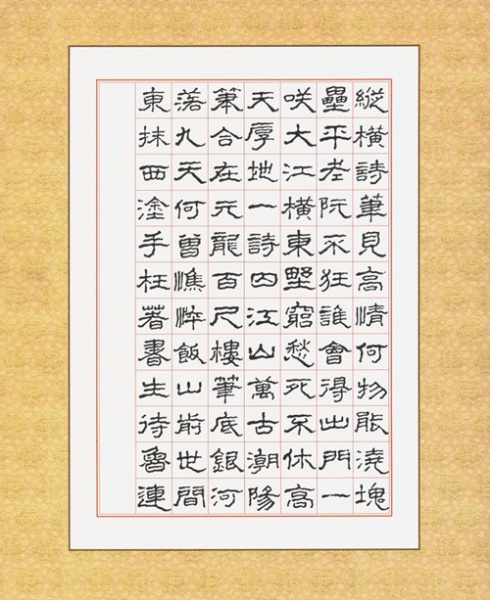 縱橫詩筆見高情何物能澆塊
壘平老阮不狂誰會得出門一
咲大江橫東墅窮愁死不休高
天厚地一詩囚江山萬古潮陽
筆合在元龍百尺樓筆底銀河
落九天何曾憔悴飯山前世間
東抹西塗手枉著書生待魯連